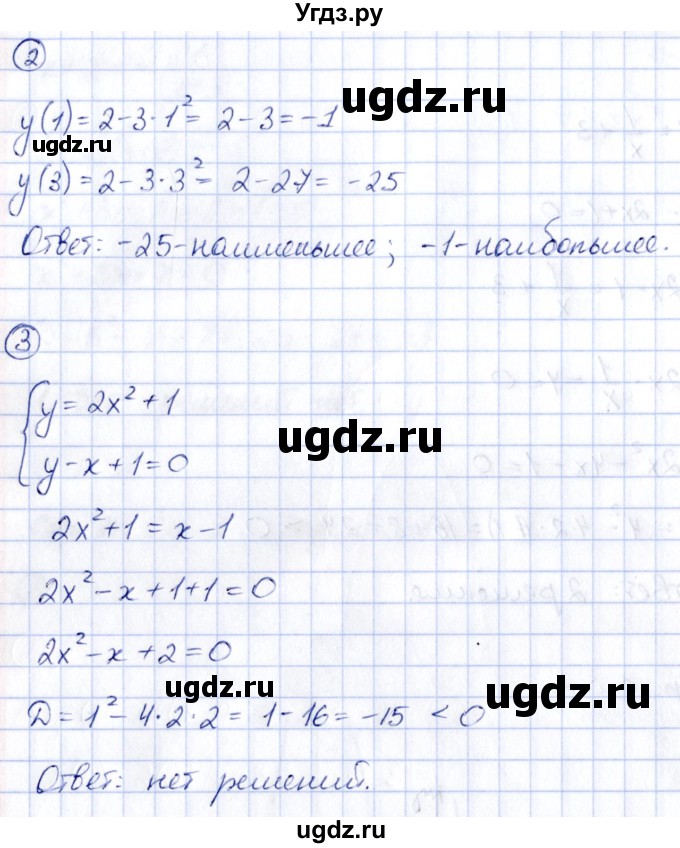 Угдз.ру
2
ugdz.ru
y(1) = 2 - 3 · 1² = 2 - 3 = -1
ugdz.ru
y(3) = 2 - 3 · 3² = 2 - 27 = -25
Ответ: -25 - наименьшее; -1 - наибольшее.
3
ugdz.ru
{ y = 2x² + 1
y - x + 1 = 0
ugdz.ru
2x² + 1 = x - 1
2x² - x + 1 + 1 = 0
2x² - x + 2 = 0
ugdz.ru
ugdz.ru
D = 1² - 4 · 2 · 2 = 1 - 16 = -15 < 0
Ответ: нет решений.
ugdz.ru